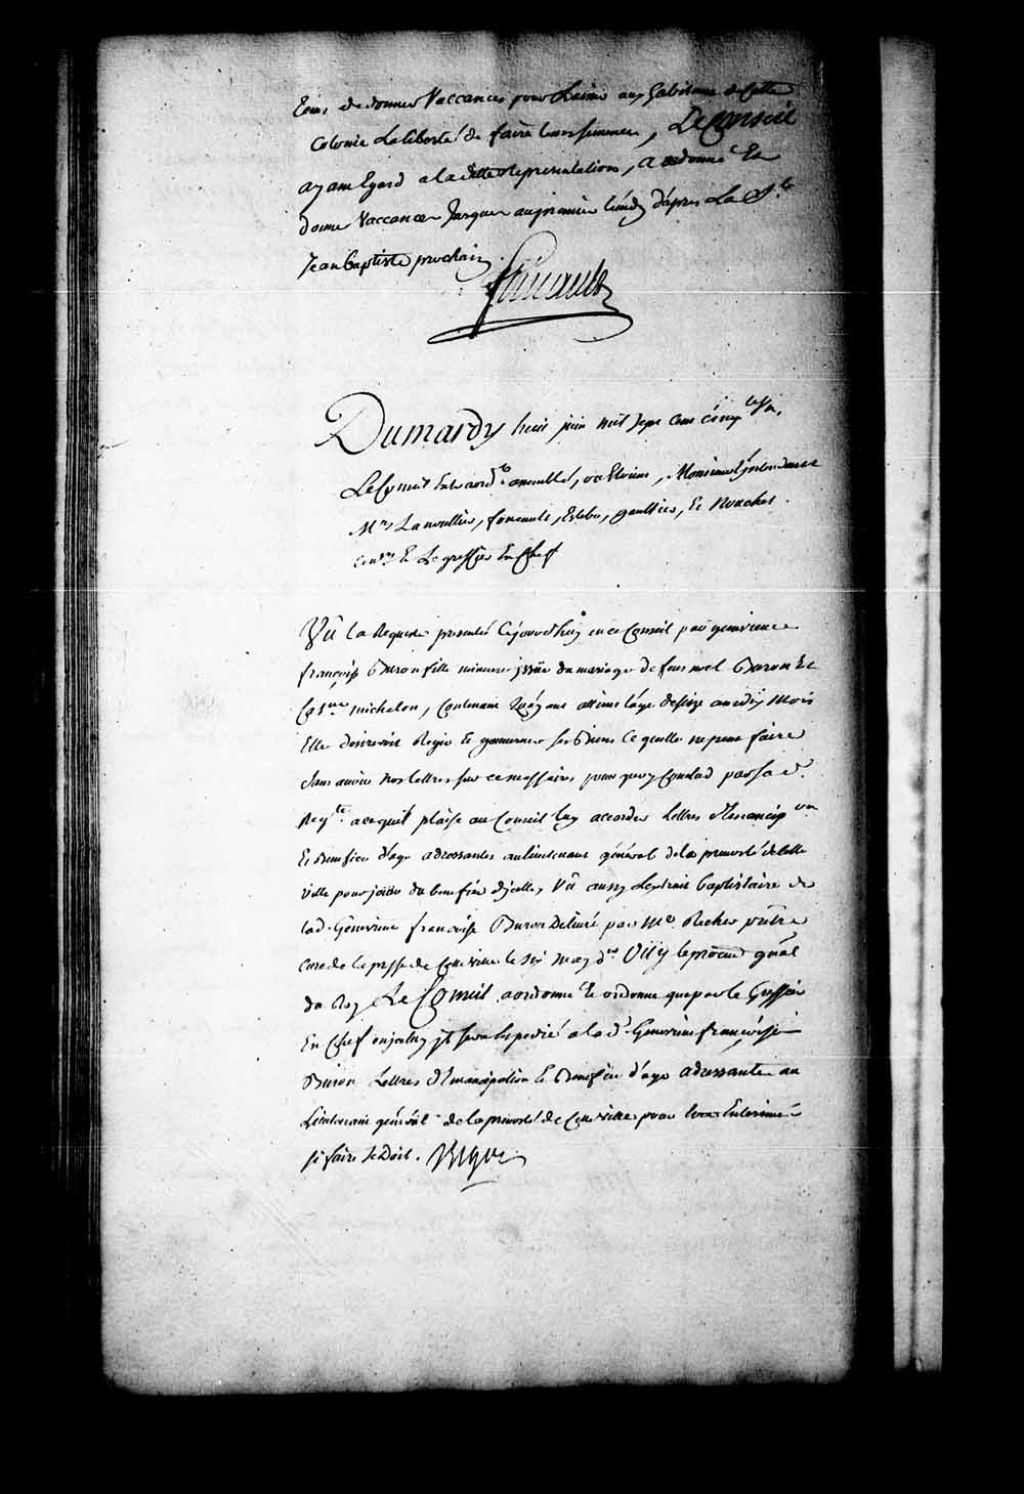 de donner Vaccances pour Laisser aux habitans de Cette
Colonie La liberté de faire leurs semences, Le Conseil
ayant Egard a la ditte Representation, a ordonné Et
donne Vaccances Jusques au premier lundy d'apres La St
Jean Baptiste prochain
foucault
Du mardy huit juin mil sept cent cinq
Le Conseil assemblé, ou Etoient, Monsieur L'intendant
Mrs Lanoullier, foucault, Estebe, gaultier, Et Nouchet
Et Le greffier En Chef
Vû la Requeste presentée Cejourd'huy en ce Conseil par genevieve
françoise Buron fille mineure issüe du mariage de feu noel Buron Et
michelon, Contenant quayant atteint l'age de dix mois
Elle desireroit Regir Et gouverner ses Biens Ce quelle ne peut faire
sans avoir nos lettres sur ce necessaires pour quoy Conclud par sa d.
Reqte. a ce quil plaise au Conseil luy accorder Lettres d'Emancipon
Et Benefice d'age adressantes au lieutenant général de la prevosté de cette
ville pour jouir du benefice d'jcelles, Vû aussy Lextrait baptistaire de
lad. Genevieve françoise Buron Delivré par Mre Recher prêtre
curé de la parsse de Cette ville le may dr Ouy le procur genal
du Roy Le Conseil a ordonné Et ordonne que par le Greffier
En Chef en jceluy jl sera Expedié a la d. Genevieve françoise
Buron Lettres d'Emancipation Et Benefice d'age adressantes au
Lieutenant général de la prevosté de Cette ville pour Etre Enterinées
si faire se Doit. Bigot